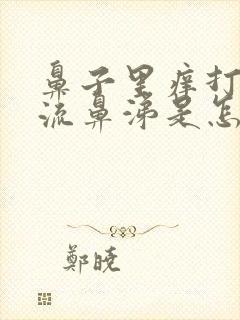 鼻子里痒打
流鼻涕是怎
鄭曉